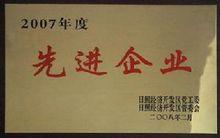 2007年度
先进企业
日照经济开发区党工委
日照经济开发区管委会
二〇〇八年二月